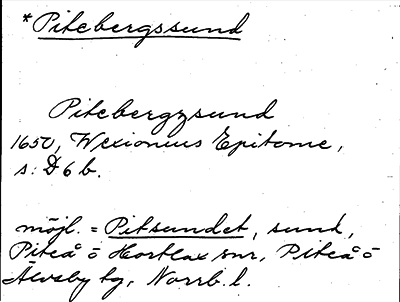 *Pitebergssund
Pitebergzsund
1650, Wexionius Epitome,
s. D6b.
möjl. = Pitsundet, sund,
Piteå o Hortlax snr, Piteå o
Älvsby tg, Norrb. l.